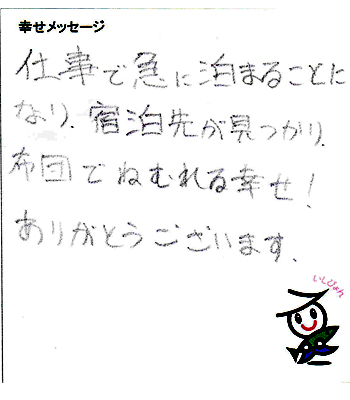 幸せメッセージ
仕事で急に泊まることに
なり、宿泊先が見つかり、
布団でねむれる幸せ!
ありがとうございます。
いしぴょん